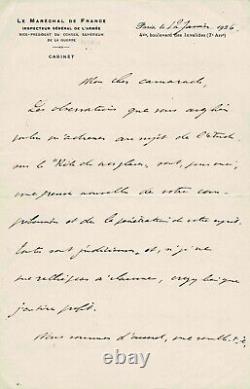 LE MARÉCHAL DE FRANCE
INSPECTEUR GÉNÉRAL DE L'ARMÉE
VICE-PRÉSIDENT DU CONSEIL SUPÉRIEUR
DE LA GUERRE
CABINET
Paris, le 12 Janvier 1926
4bis, boulevard des Invalides (7e Arrt)
Mon cher camarade,
Les observations que vous avez bien
voulu m'adresser au sujet de l'étude
sur le "Rôle des", sont, pour moi,
une preuve nouvelle de votre
et de la pénétration de votre esprit.
Toutes sont judicieuses, et, si je ne
me rallie pas à chacune, croyez bien que
j'en tire profit.
Nous sommes d'accord,